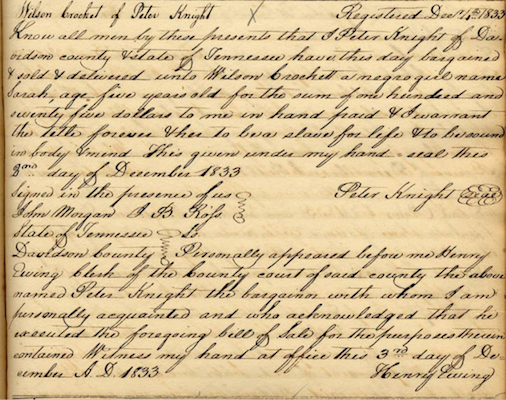 Wilson Crocket of Peter Knight X Registered Decr 4th 1833
Know all men by these presents that I Peter Knight of Da-
vidson county & state of Tennessee have this day bargained
& sold & delivered unto Wilson Crockett a negro girl name
Sarah, age five years old for the sum of one hundred and
seventy five dollars to me in hand paid & I warrant
the title forever & her to be a slave for life & to be sound
in body & mind This given under my hand & seal this
2nd day of December 1833
Signed in the presence of us Peter Knight Seal
John Morgan J B Ross
State of Tennessee Ss
Davidson County Personally appeared before me Henry
Ewing Clerk of the County court of said county the above
named Peter Knight the bargainor with whom I am
personally acquainted and who acknowledged that he
executed the foregoing bill of Sale for the purposes therein
contained Witness my hand at office this 3rd day of De-
cember A. D. 1833 Henry Ewing